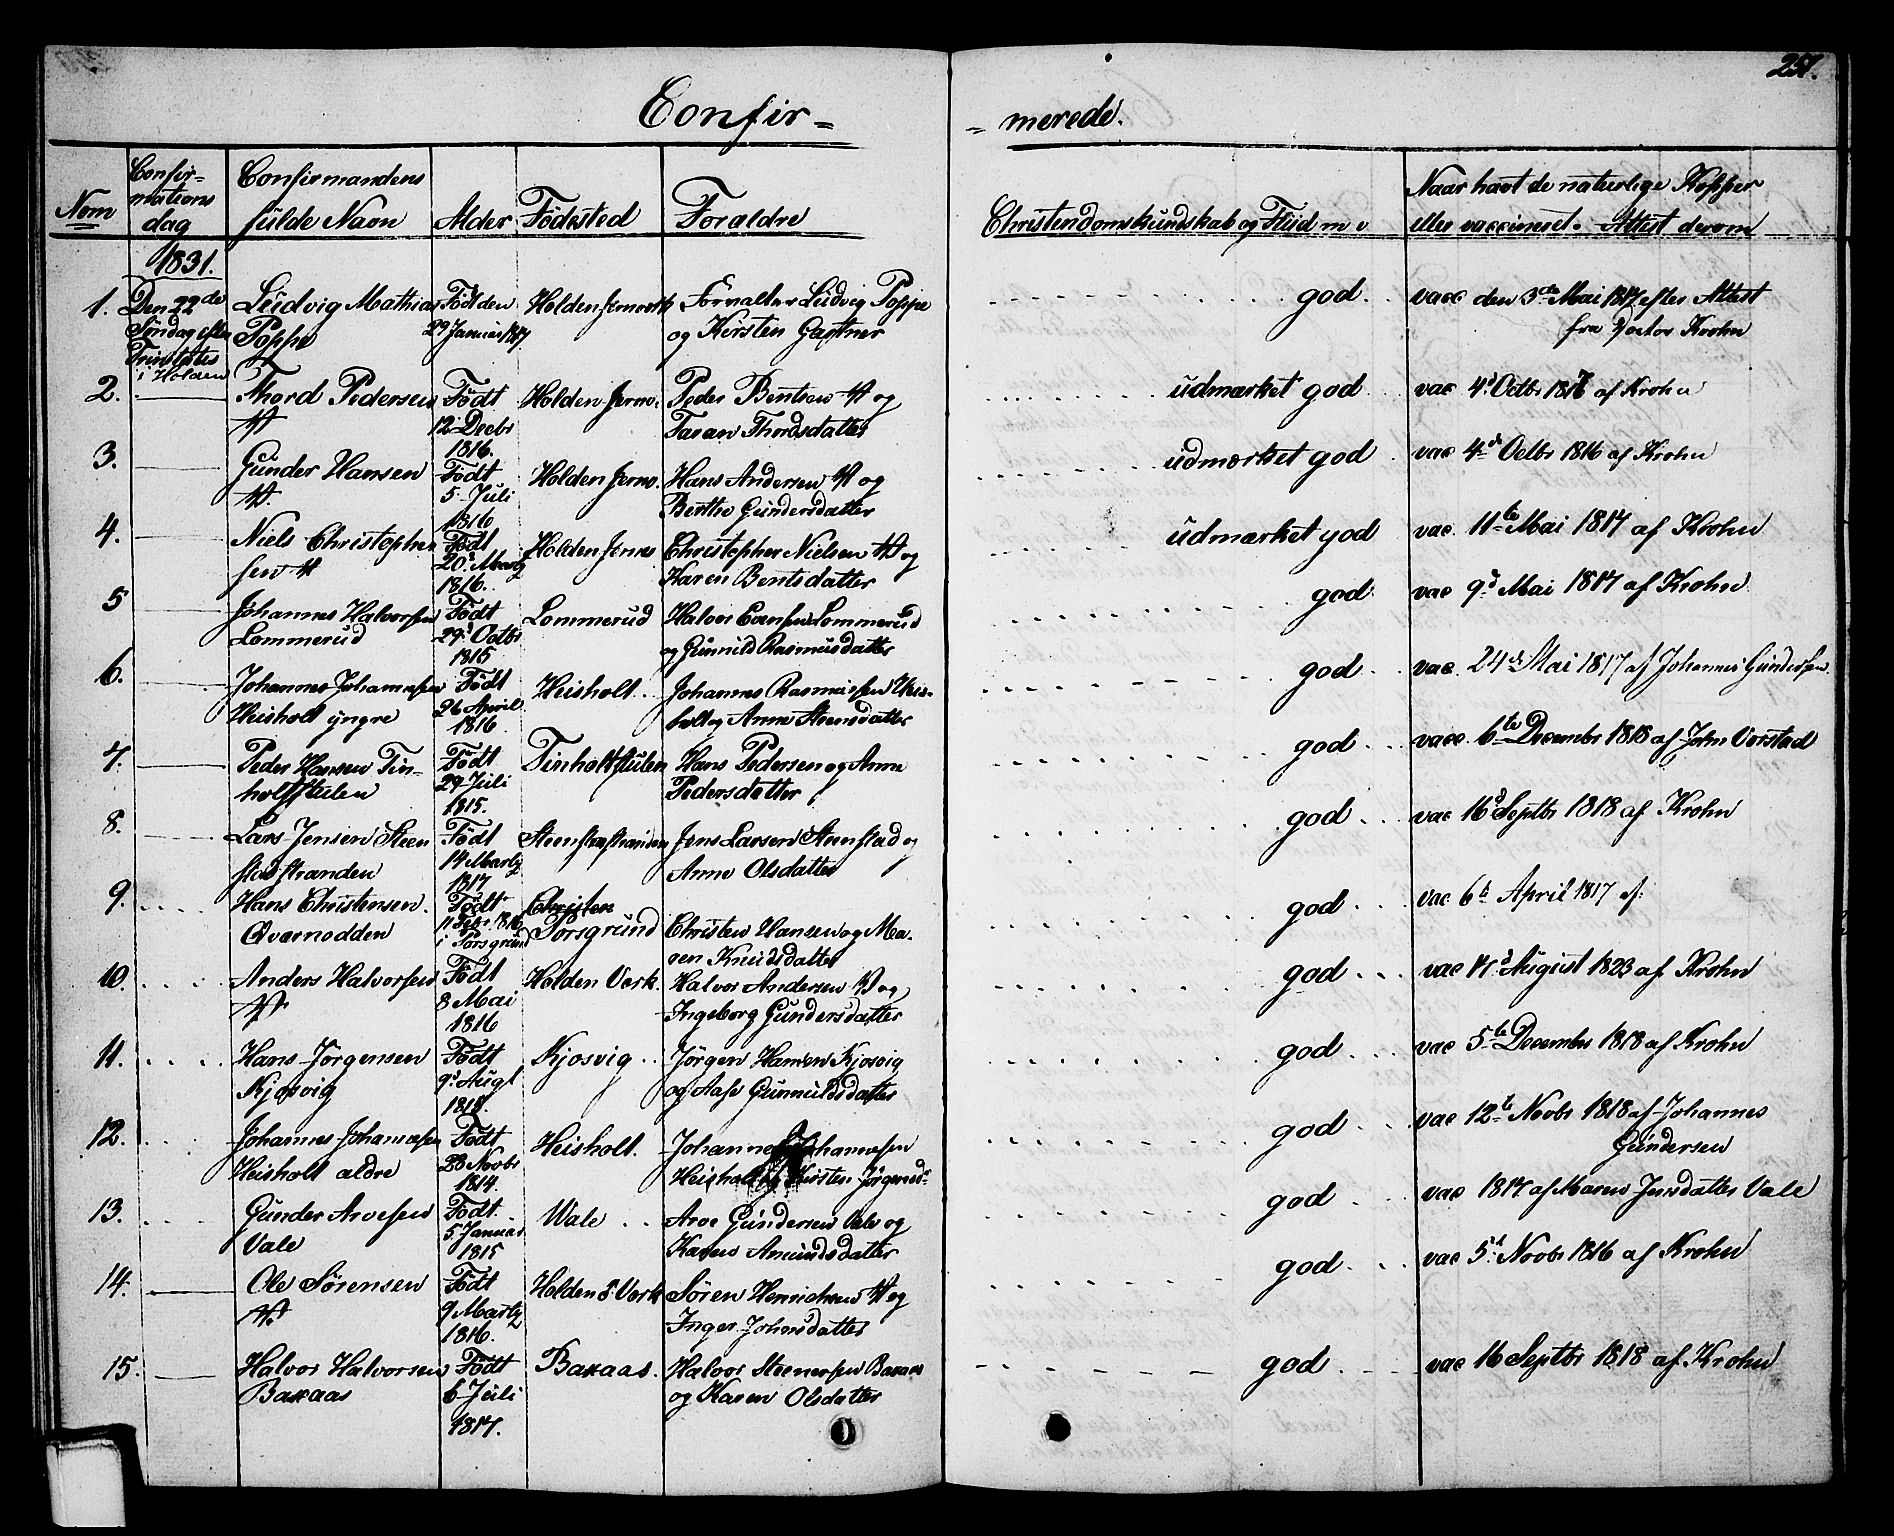 251.
Confir=
= merede.
Nom
Confir=
mations
dag
Confirmandens
fulde Navn
Alder
Födested
Forældre
Christendomskundskab og Fliid m v
Naar havt de naturlige Kopper
eller vaccineret. Attest derom
1831.
1. Den 22de
Søndag efter
Trinitatis
i Holden
Ludvig Mathias
Poppe
Födt den
29 Januar 1817
Holden Jernverk
Forvalter Ludvig Poppe
og Kirsten Gartner
god
vacc den 3die Mai 1817 efter Attest
fra Doctor Krohn
2.
Thord Pedersen
Födt
12 Decbr
1816.
Holden Jernv.
Peder Bentsen og
Taran Thordsdatter
udmærket god
vac 4d Octbr 1816 af Krohn
3.
Gunder Hansen
Födt
5 Juli
1816
Holden Jernv.
Hans Andersen og
Berthe Gundersdatter
udmærket god
vac 4d Octbr 1816 af Krohn
4.
Niels Christopher
sen
Födt
20 Marty
1816.
Holden Jernv
Christopher Nielsen og
Karen Bentsdatter
udmærket god
vac. 11te Mai 1817 af Krohn
5
Johannes Halvorsen
Lommerud
Födt
29 Octbr
1815
Lommerud
Halvor Evensen Lommerud
og Gunnild Rasmusdatter
god
vac 9d Mai 1817 af Krohn
6.
Johannes Johannesen
Heisholt yngre
Födt
26 April
1816
Heisholt
Johannes Rasmussen Heis=
holt og Anne Steensdatter
god
vac. 24d Mai 1817 af Johannes Gundersen
7.
Peder Hansen Tin=
holtstulen
Födt
29 Juli
1815.
Tinholtstulen
Hans Pedersen og Anne
Pedersdatter
god
vacc. 6te Decembr 1818 af John Verstad
8.
Lars Jensen Steen
stadstranden
Födt
14 Marty
1817
Steenstadstranden
Jens Larsen Steenstad og
Anne Olsdatter
god
vac 16d Septbr 1818 af Krohn
9.
Hans Christensen
Qværnodden
Födt
11 Febr. 1816
i Porsgrund
Christen
Porsgrund
Christen Hansen og Ma=
ren Knudsdatter
god
vac 6te April 1817 af
10.
Anders Halvorsen
Födt
8 Mai
1816
Holden Værk.
Halvor Andersen og
Ingeborg Gundersdatter
god
vac 17d August 1823 af Krohn
11.
Hans Jörgensen
Kjosvig
Födt
9d Augt
1818.
Kjosvig
Jörgen Hansen Kjosvig
og Aase Gunnuldsdatter
god
vac 5te December 1818 af Krohn
12.
Johannes Johannesen
Heisholt ældre
Födt
28 Novbr
1814.
Heisholt.
Johannes Johannesen
Heisholt og Kirsten Jörgensd=
god
vac 12te Novbr 1818 af Johannes
Gundersen
13.
Gunder Arvesen
Vale
Födt
5 Januar
1815
Wale
Arve Gundersen Vale og
Karen Amundsdatter
god
vac 1817 af Maren Jensdatter Vale
14.
Ole Sörensen
Födt
9 Marty
1816.
Holdens Værk
Sören Henrichsen og
Inger Johnsdatter
god
vac 5d Novbr 1816 af Krohn
15.
Halvor Halvorsen
Baxaas
Födt
6 Juli
1817.
Baxaas.
Halvor Steenersen Baxaas
og Karen Olsdatter
god
vac 16 Septbr 1818 af Krohn